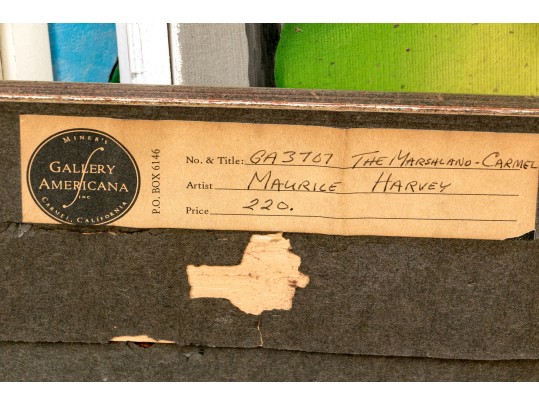 MINER'S
GALLERY
AMERICANA
INC
CARMEL, CALIFORNIA
P.O. BOX 6146
No. & Title: GA3707 THE MARSHLAND-CARMEL
Artist MAURICE HARVEY
Price 220.